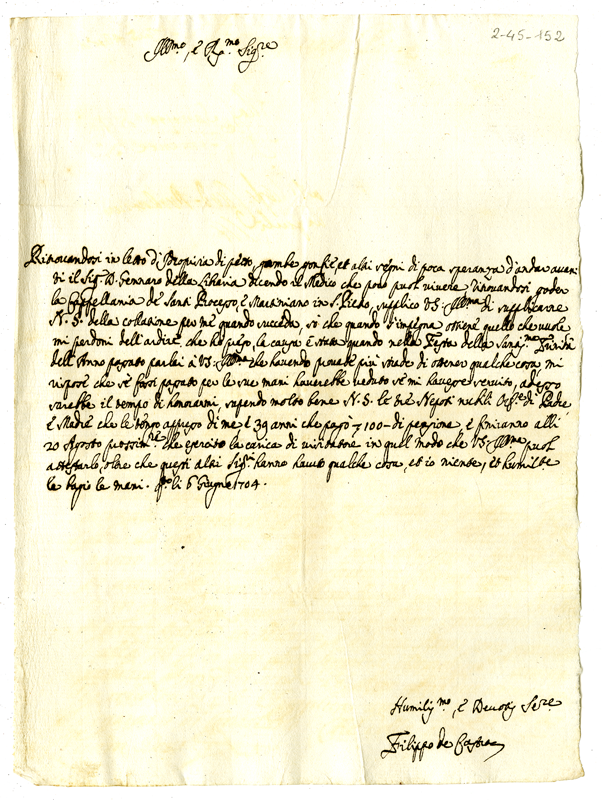 2-45-152
Ill.mo, e R.mo Sig.re
Ritrovandosi in letto d'Itropisia di petto, gambe gonfie, et altri segni di poca speranza d'andar avan
ti il Sig.r D. Gennaro della Libraria dicendo il Medico che poco puol vivere ritrovandosi goder
la Cappellania de Santi Processo, e Martiniano in S. Pietro, supplico V.S. Ill.ma di supplicare
N.S. della collatione per me quando succeda, sò che quando s'impegna ottiene quello che vuole
mi perdoni dell'ardire, che ho preso, la causa è stata quando nella Festa della Sant.ma Trinità
dell'Anno passato parlai à V.S. Ill.ma che havendo provate più strade di ottener qualche cosa, mi
rispose che se fosse passato per le sue mani haverebbe veduto se mi havesse servito, adesso
sarebbe il tempo di honorarmi, sapendo molto bene N.S. le tre Nepoti nubili Orf.e di Padre
e Madre che le tengo appresso di me, e 39 anni che pago 100 di pensione, e finiranno alli
20 Agosto prossimo che esercito la carica di visitatore in quel modo che V.S. Ill.ma puol
attestarlo, oltre che questi altri Sig.ri hanno havuto qualche cosa, et io niente, et humilte
le bagio le mani. li 6 Giugno 1704.
Humiliss.mo, e Devotiss. Ser.re
Filippo de Castro